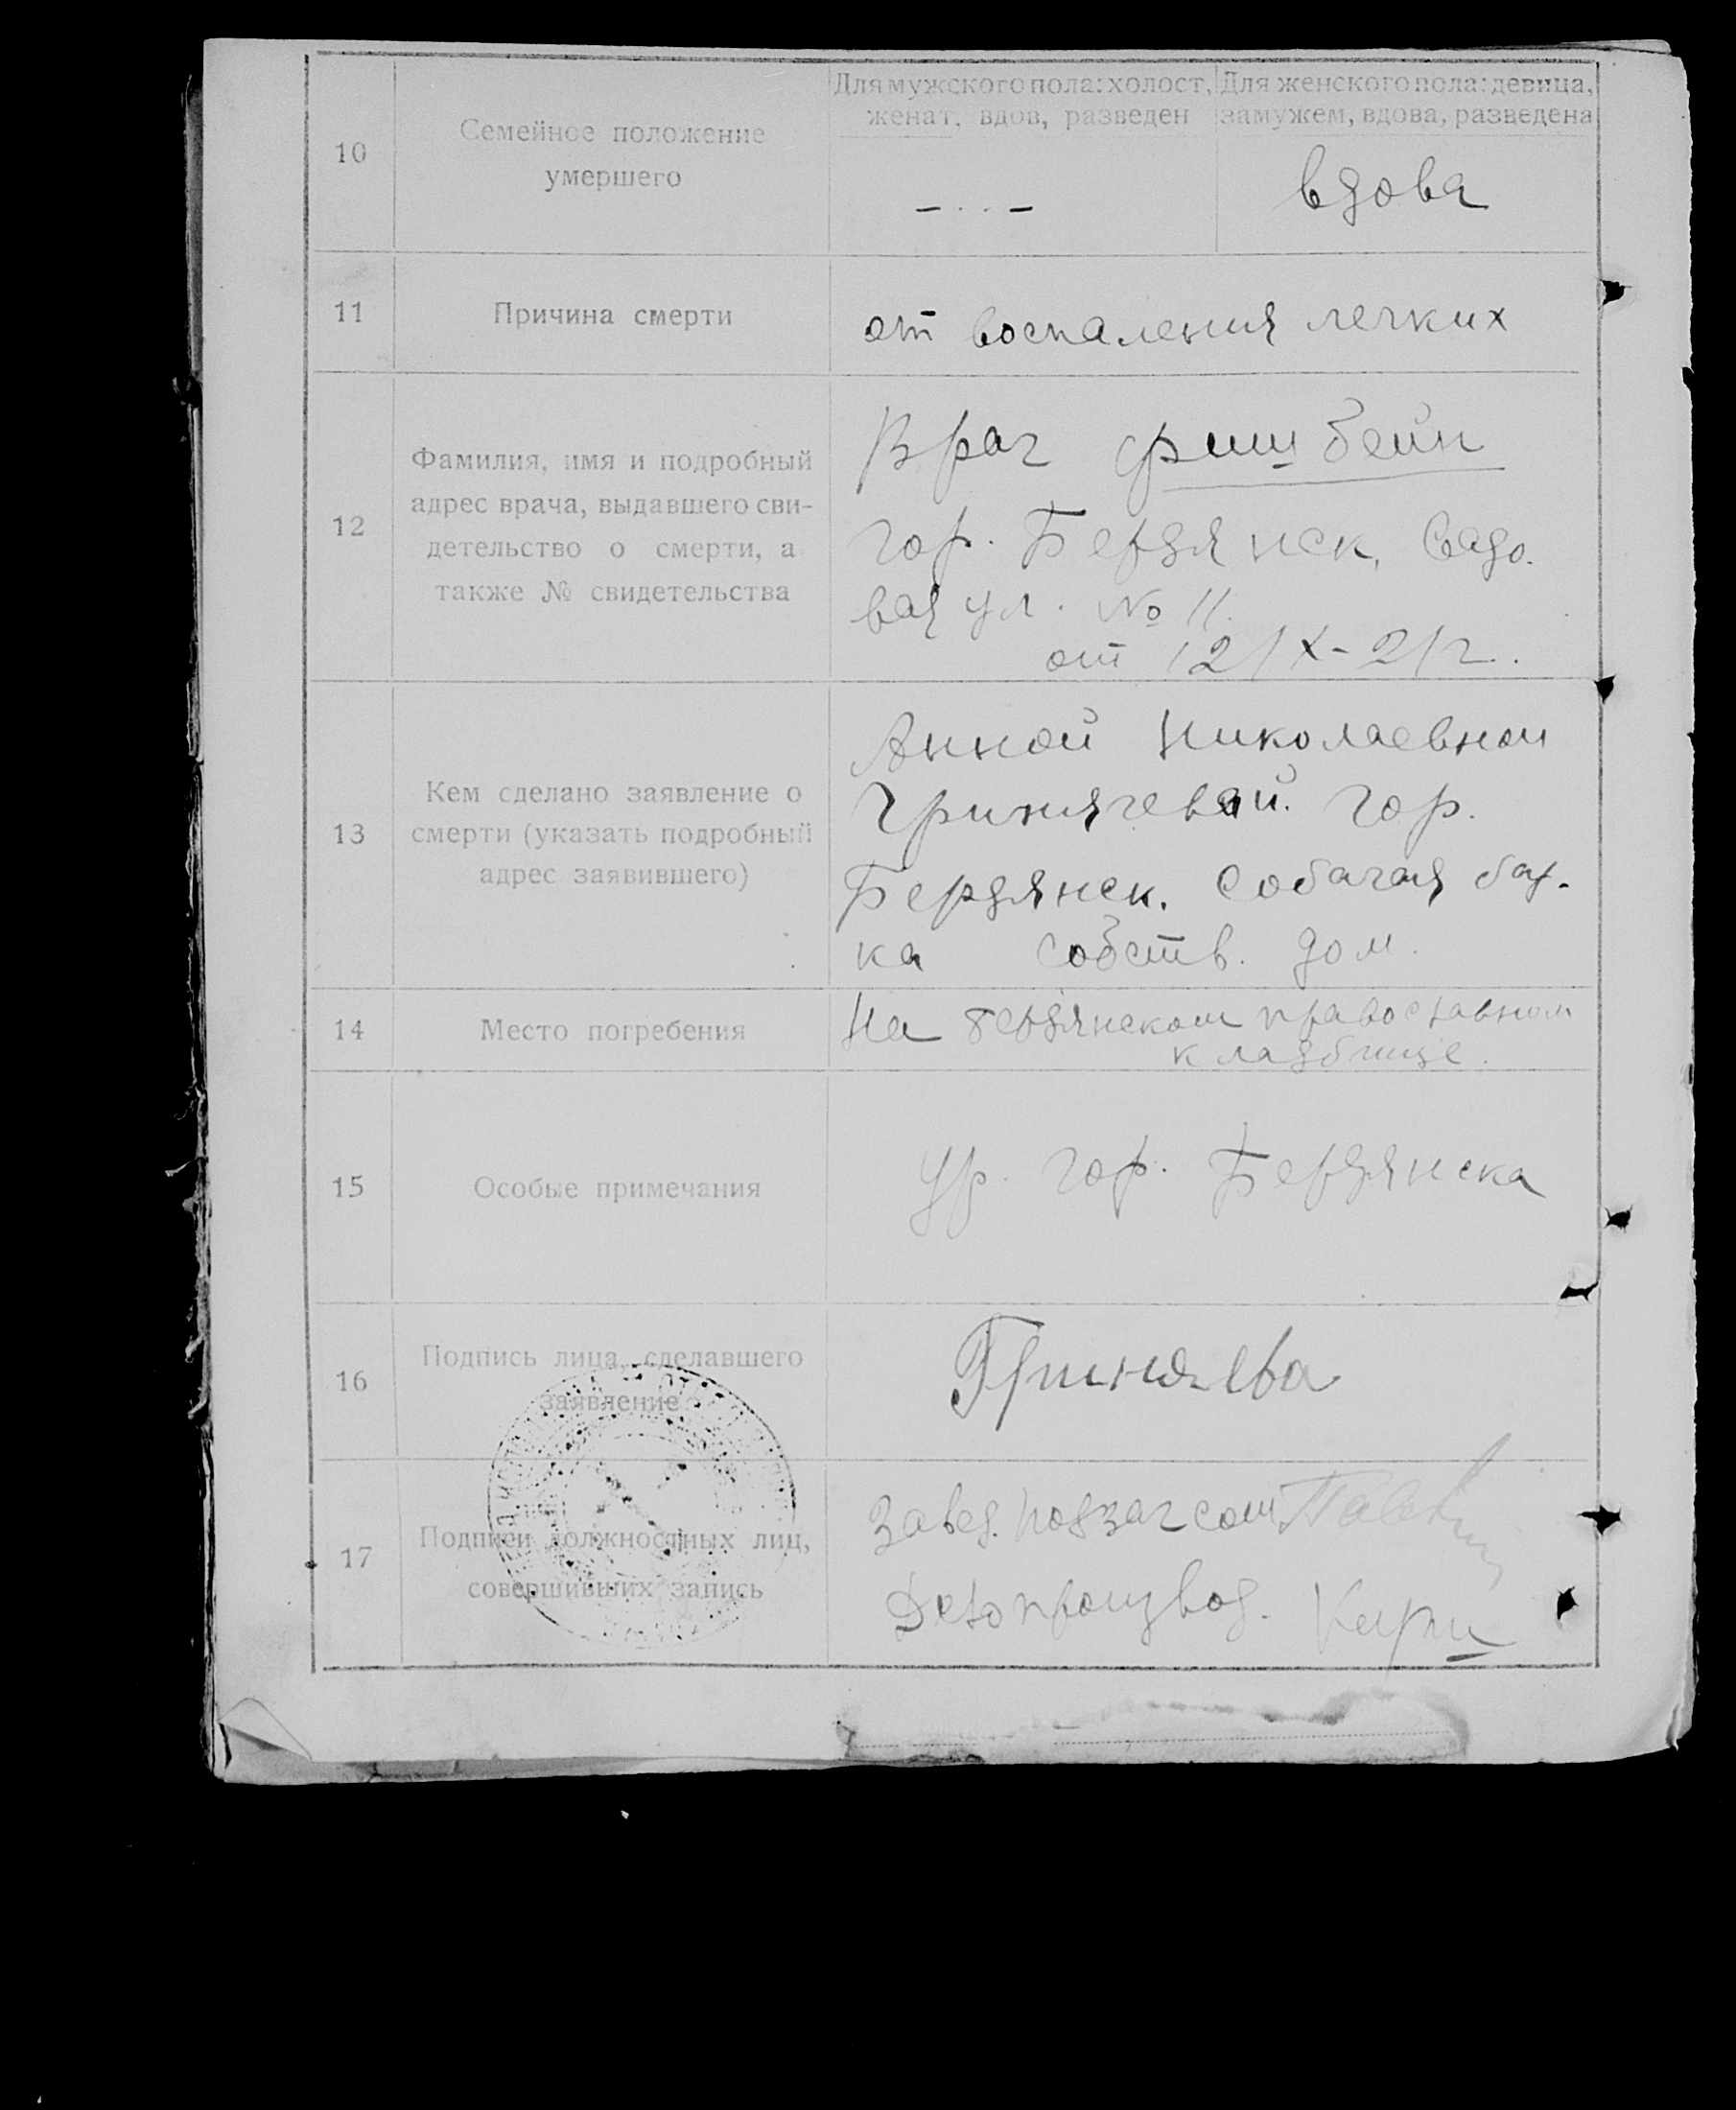 10
Семейное положение
умершего
Для мужского пола: холост,
женат, вдов, разведен
Для женского пола: девица,
замужем, вдова, разведена
вдова
11
Причина смерти
от воспаления легких
12
Фамилия, имя и подробный
адрес врача, выдавшего сви-
детельство о смерти, а
также № свидетельства
Врач Фишбейн
гор. Бердянск, Садо-
вая ул. № 11.
от 12/X-21г.
13
Кем сделано заявление о
смерти (указать подробный
адрес заявившего)
Анной Николаевной
Гринячевой. гор.
Бердянск. Собачая бал-
ка собств. дом.
14
Место погребения
На бердянском православном
кладбище.
15
Особые примечания
Ур. гор. Бердянска
16
Подпись лица, сделавшего
заявление
17
Подписи должностных лиц,
совершивших запись
Завед. подзагсом
Делопроизвод.